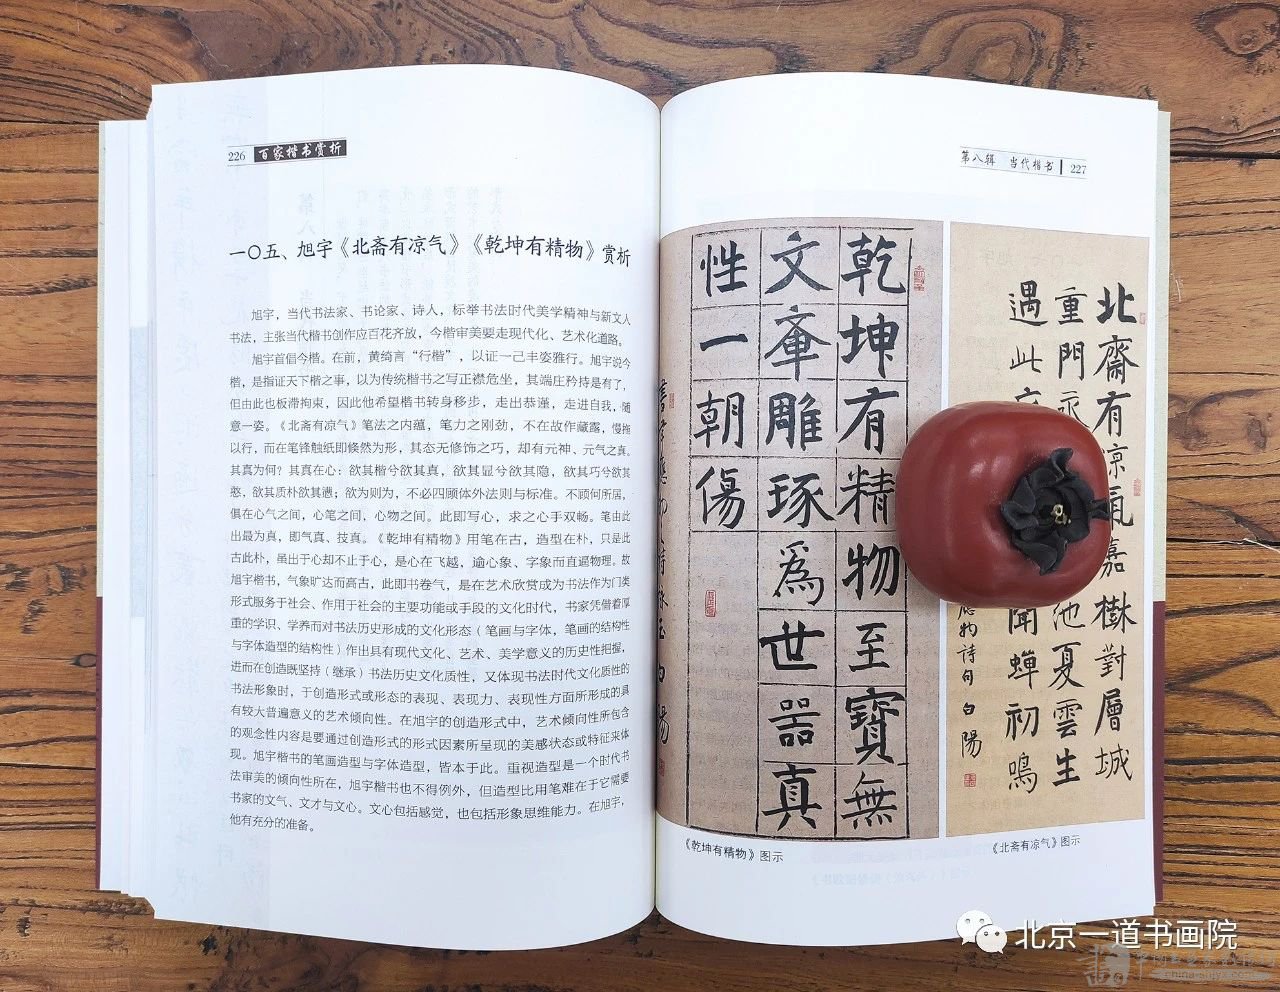 226 百家楷书赏析
一〇五、旭宇《北斋有凉气》《乾坤有精物》赏析
旭宇，当代书法家、书论家、诗人，标举书法时代美学精神与新文人
书法，主张当代楷书创作应百花齐放，今楷审美要走现代化、艺术化道路。
旭宇首倡今楷。在前，黄绮言“行楷”，以证一己丰姿雅行。旭宇说今
楷，是指证天下楷之事，以为传统楷书之写正襟危坐，其端庄矜持是有了，
但由此也板滞拘束，因此他希望楷书转身移步，走出恭谨，走进自我，随
意一姿。《北斋有凉气》笔法之内蕴，笔力之刚劲，不在故作藏露，慢拖
以行，而在笔锋触纸即倏然为形，其态无修饰之巧，却有元神、元气之真。
其真为何？其真在心：欲其楷兮欲其真，欲其显兮欲其隐，欲其巧兮欲其
憨，欲其质朴欲其懑；欲为则为，不必四顾体外法则与标准。不顾何所居，
俱在心气之间，心笔之间，心物之间。此即写心，求之心手双畅。笔由此
出最为真，即气真、技真。《乾坤有精物》用笔在古，造型在朴，只是此
古此朴，虽出于心却不止于心，是心在飞越，逾心象、字象而直逼物理。故
旭宇楷书，气象旷达而高古，此即书卷气，是在艺术欣赏成为书法作为门类
形式服务于社会、作用于社会的主要功能或手段的文化时代，书家凭借着厚
重的学识、学养而对书法历史形成的文化形态（笔画与字体，笔画的结构性
与字体造型的结构性）作出具有现代文化、艺术、美学意义的历史性把握，
进而在创造既坚持（继承）书法历史文化质性，又体现书法时代文化质性的
书法形象时，于创造形式或形态的表现、表现力、表现性方面所形成的具
有较大普遍意义的艺术倾向性。在旭宇的创造形式中，艺术倾向性所包含
的观念性内容是要通过创造形式的形式因素所呈现的美感状态或特征来体
现。旭宇楷书的笔画造型与字体造型，皆本于此。重视造型是一个时代书
法审美的倾向性所在，旭宇楷书也不得例外，但造型比用笔难在于它需要
书家的文气、文才与文心。文心包括感觉，也包括形象思维能力。在旭宇，
他有充分的准备。
第八辑 当代楷书 227
北齋有凉氣嘉樹對層城
重門 池夏雲生
遇此 聞蟬初鳴
應物詩句 白陽
乾坤有精物至寶無
文章雕琢為世器真
性一朝傷
《乾坤有精物》图示
《北斋有凉气》图示
北京一道书画院